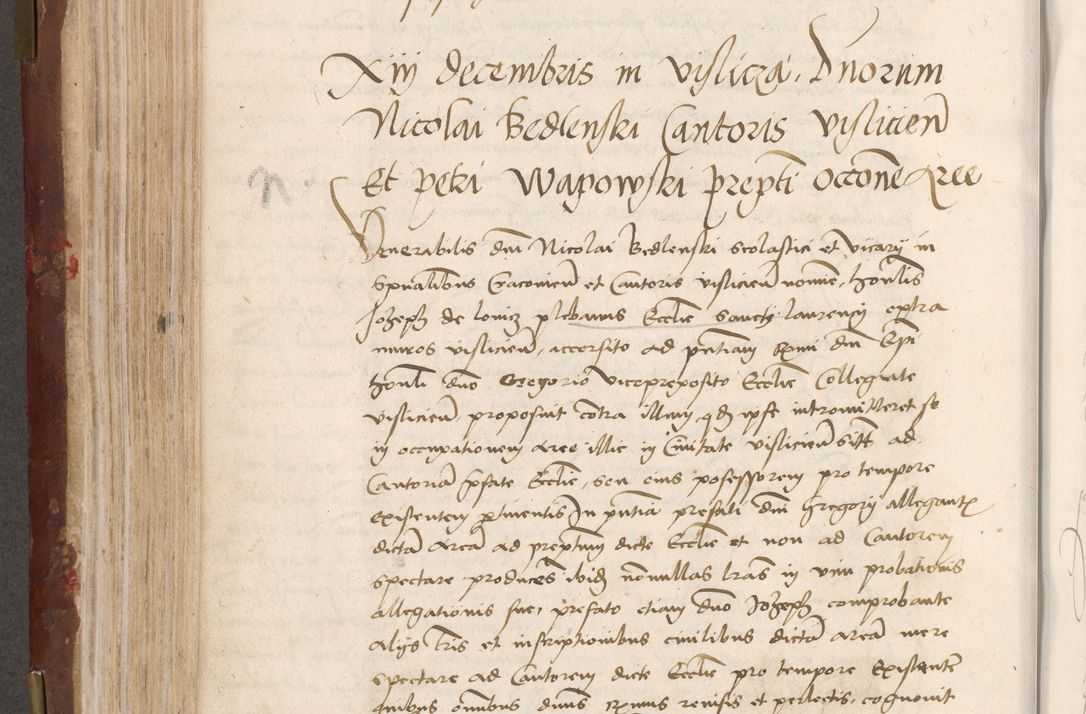 Xiij decembris in vislicza. Dnorum
Nicolai Bedlenski Cantoris vislicien
Et petri Wapowski prepti occone Aree
Venerabilis dni Nicolai Bedlenski scolastici et vicarij in
spualibus Cracovien et Cantoris vislicien nomine, honlis
Joseph de lovicz plebanus Ecclie sancti laurencij extra
muros vislicien, accersito ad pntiam Rmi dni Epi
honli dno Gregorio viceprepositо Ecclie Collegiate
vislicien, proposuit contra illum, qd ipse intromitteret se
in occupationem aree illic in Civitate vislicien site ad
Cantoriam pfate Ecclie, seu eius possessorem pro tempore
existentem pertinentis In pntia prefati dni Gregorij allegantis
dictam aream ad preptum dicte Ecclie et non ad Cantorem
spectare, producens ibidem nonnullas lras in vim probationis
allegationis sue, prefato etiam dno Joseph comprobante
alijs lris et inscriptionibus civilibus dictam aream mere
spectare ad Cantorem dicte Ecclie pro tempore existentem
quibus omnibus dnus Rmus revisis et perlectis, cognovit